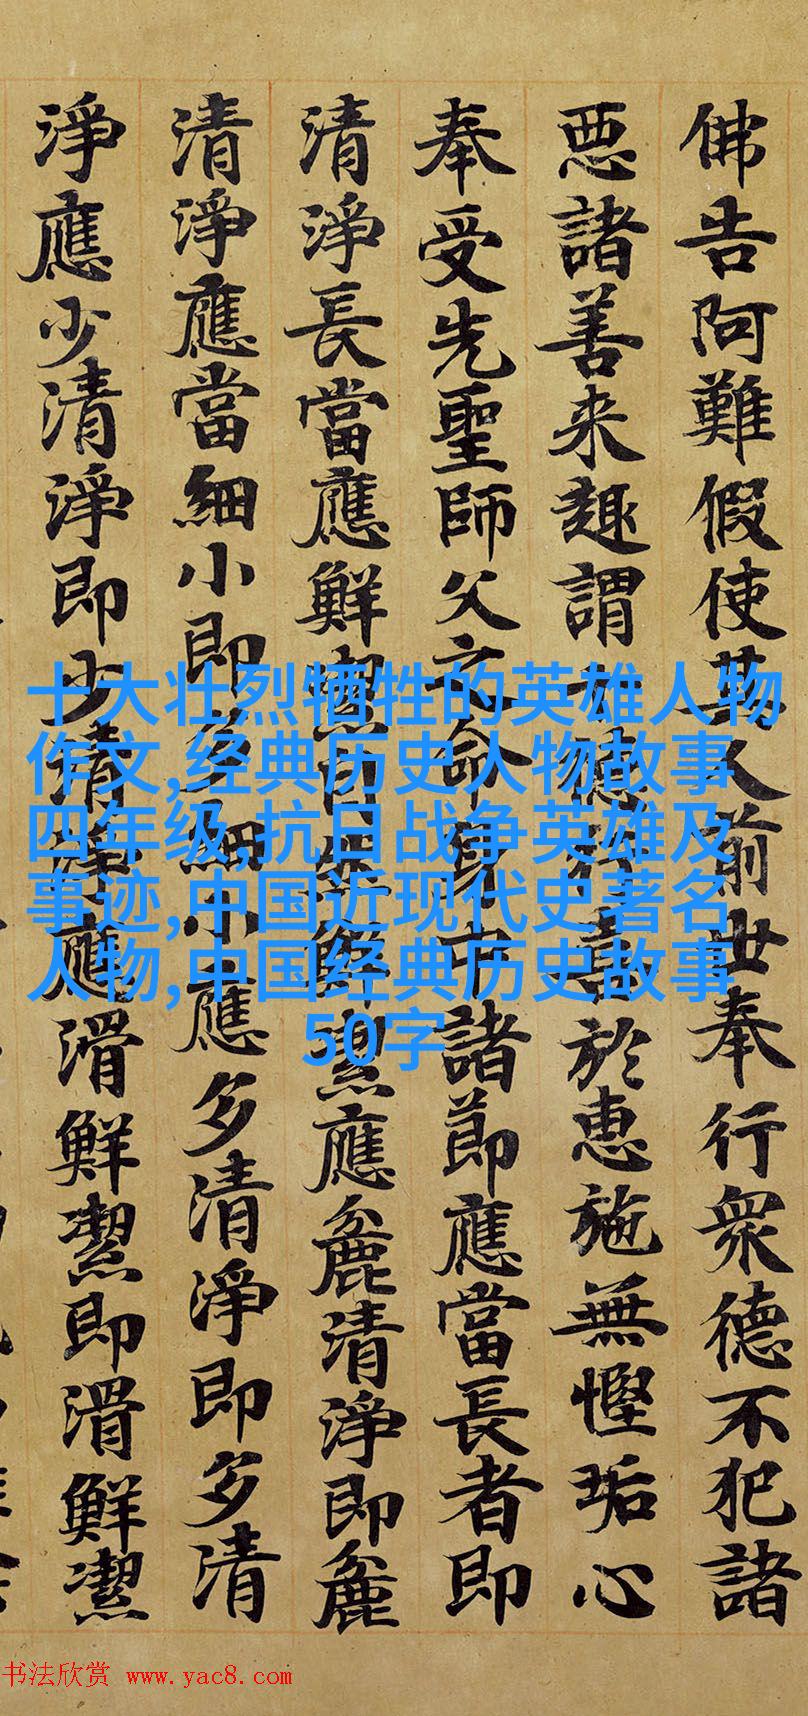 佛告阿難假使其人前世奉行衆德不犯諸
悪諸善来趣謂德喜於惠施無慳垢心
奉受先聖師父之命身中諸節應當長者即
清淨長當應鮮潔自然鮮潔應麁清淨即麁
清淨應當細小即多細小應多清淨即多清
淨應少清淨即少清淨應滑鮮潔即滑鮮潔
十大壮烈牺牲的英雄人物
作文,经典历史人物故事
四年级,抗日战争英雄及
事迹,中国近现代史著名
人物,中国经典历史故事
50字
书法欣赏 www.yac8.com